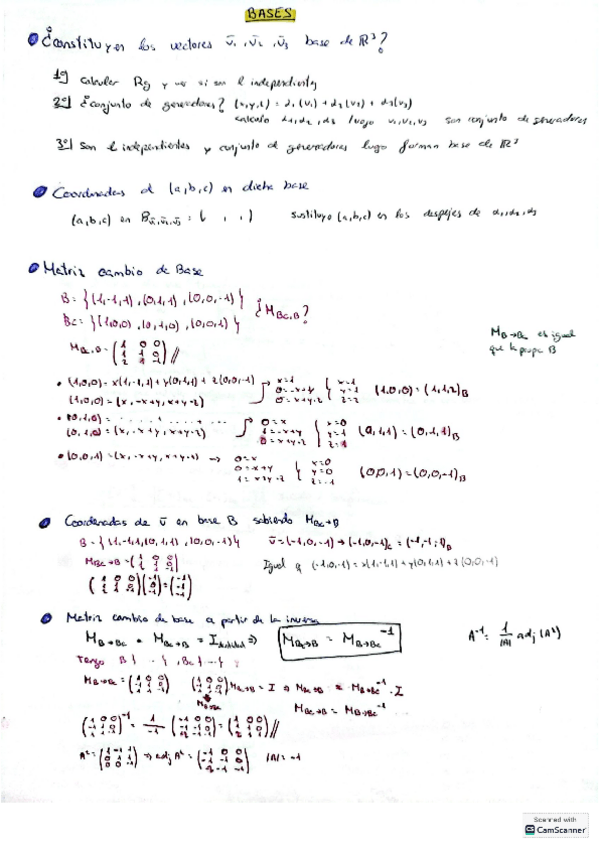 BASES
¿Constituyen los vectores v̄1, v̄2, v̄3 base de R³?
1º) Calcular Rg y ver si son l independientes
2º) ¿Conjunto de generadores? (x,y,z) = α1(v1) + α2(v2) + α3(v3)
calculo α1, α2, α3 luego v1, v2, v3 son conjunto de generadores
3º) Son l independientes y conjunto de generadores luego forman base de R³
Coordenadas d (a,b,c) en dicha base
(a,b,c) en B v̄1,v̄2,v̄3 = ( , , ) sustituyo (a,b,c) en los despejes de α1, α2, α3
Matriz cambio de Base
B = {(1,-1,1), (0,1,1), (0,0,-1)}
¿M Bc,B?
Bc = {(1,0,0), (0,1,0), (0,0,1)}
M B→Bc es igual
que la propia B
M Bc,B = (1 0 0
1 1 0
2 1 -1) //
(1,0,0) = x(1,-1,1) + y(0,1,1) + z(0,0,-1) → x=1 0=-x+y 0=x+y-z { x=1 y=1 z=2 (1,0,0) = (1,1,2)B
(1,0,0) = (x, -x+y, x+y-z)
(0,1,0) = ...
(0,1,0) = (x, -x+y, x+y-z) → 0=x 1=-x+y 0=x+y-z { x=0 y=1 z=1 (0,1,0) = (0,1,1)B
(0,0,1) = (x, -x+y, x+y-z) → 0=x 0=-x+y 1=x+y-z { x=0 y=0 z=-1 (0,0,1) = (0,0,-1)B
Coordenadas de v̄ en base B sabiendo M Bc→B
B = {(1,-1,1), (0,1,1), (0,0,-1)} v̄ = (-1,0,-1) → (-1,0,-1)c = (-1,-1,-1)B
M Bc→B = (1 0 0
1 1 0
2 1 -1)
Igual q (-1,0,-1) = x(1,-1,1) + y(0,1,1) + z(0,0,-1)
Matriz cambio de base a partir de la inversa
M B→Bc · M Bc→B = I identidad ⇒ M Bc→B = M B→Bc⁻¹
A⁻¹ = 1/|A| adj (Aᵗ)
Tengo B {...}, Bc {...}
M Bc→B = M B→Bc⁻¹ · I
M Bc→B = M B→Bc⁻¹
|A| = -1
Scanned with
CamScanner